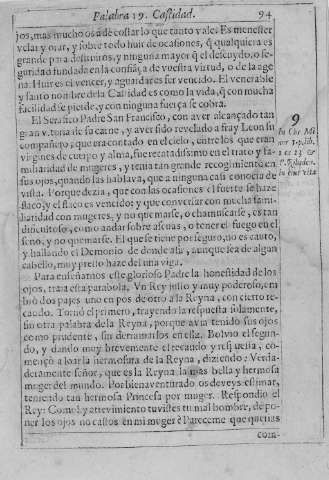 Palabra 19. Castidad. 94
jos, mas mucho os à de costar lo que tanto vale. Es menester
velar y orar, y sobre todo huir de ocasiones, q̃ qualquiera es
grande para destruiros, y ninguna mayor q̃ el descuydo, o se-
guridad fundada en la confiãça de vuestra virtud, o de la age
na. Huir es vencer, y aguardar es ser vencido. El venerable
y santo nombre de la Castidad es como la vida, q̃ con mucha
facilidad se pierde, y con ninguna fuerça se cobra.
El Serafico Padre San Francisco, con aver alcançado tan
gran vitoria de su carne, y aver sido revelado a fray Leon su
compañero, que era contado en el cielo, entre los que eran
virgines de cuerpo y alma, fue recatadissimo en el trato y fa-
miliaridad de mugeres, y tenia tan grande recogimiento en
sus ojos, quando las hablava, que a ninguna casi conocia de
vista. Porque dezia, que con las ocasiones el fuerte se haze
flaco, y el flaco es vencido: y que conversar con mucha fami-
liaridad con mugeres, y no quemarse, o chamuscarse, es tan
dificultoso, como andar sobre ascuas, o tener el fuego en el
seno, y no quemarse. El que se tiene por seguro, no es cauto,
y hallando el Demonio de donde asir, aunque sea de algun
cabello, muy presto haze del una viga.
Para enseñarnos este glorioso Padre la honestidad de los
ojos, traia esta parabola. Vn Rey justo y muy poderoso, em
biò dos pajes uno en pos de otro a la Reyna, con cierto re-
caudo. Tornò el primero, trayendo la respuesta solamente,
sin otra palabra de la Reyna, porque avia tenido sus ojos
como prudente, sin derramarlos en ella. Bolvio el segun-
do, y dando muy brevemente el recaudo y respuesta, co-
mençò a loar la hermosura de la Reyna, diziendo: Verda-
deramente señor, que es la Reyna la mas bella y hermosa
muger del mundo. Por bienaventurado os deveys estimar,
teniendo tan hermosa Princesa por muger. Respondio el
Rey: Como? y atrevimiento tuvistes tu mal hombre, de po-
ner los ojos no castos en mi muger? Pareceme que querias
com-
9
In Chr. Mi
nor 1 p. lib.
1 cz 23 &
in eius vita